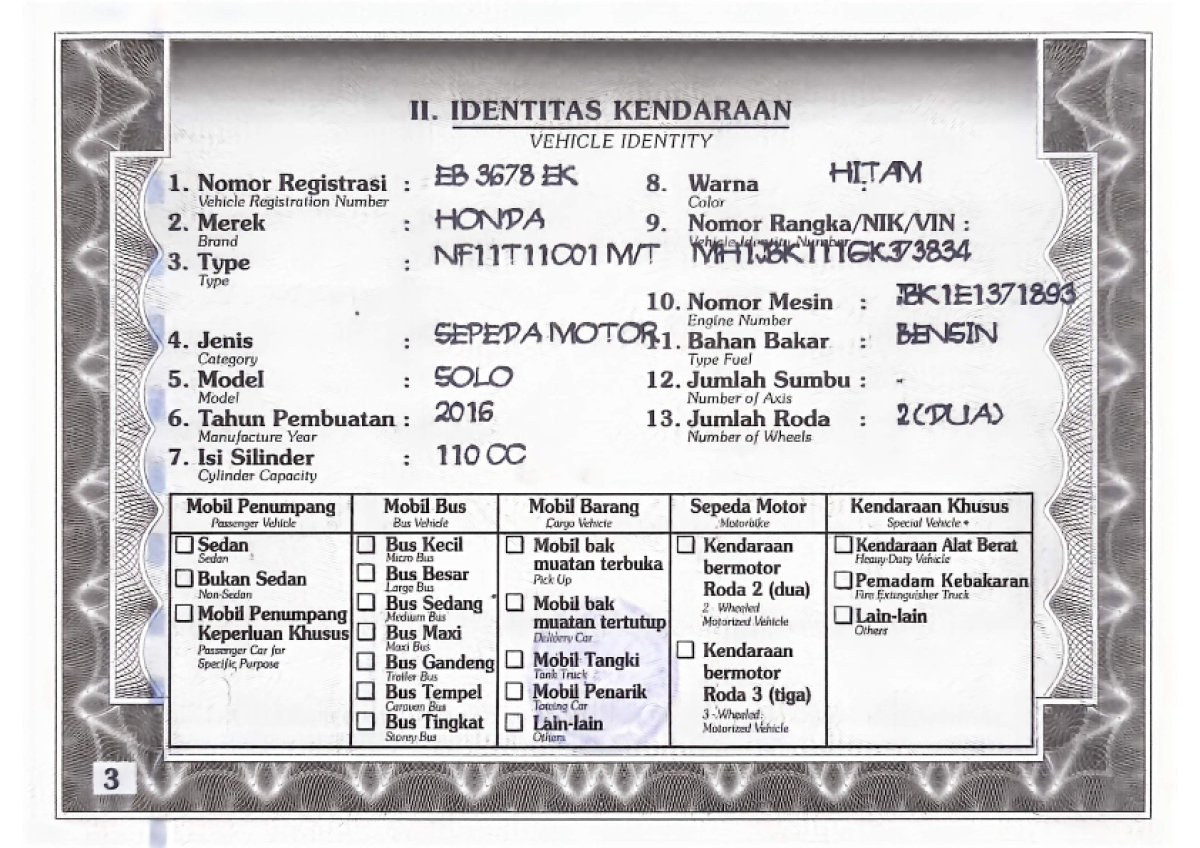 II. IDENTITAS KENDARAAN
VEHICLE IDENTITY
1. Nomor Registrasi : EB 3678 EK
Vehicle Registration Number
2. Merek : HONDA
Brand
3. Type : NF11T11C01 M/T
Type
4. Jenis : SEPEDA MOTOR
Category
5. Model : SOLO
Model
6. Tahun Pembuatan : 2016
Manufacture Year
7. Isi Silinder : 110 CC
Cylinder Capacity
8. Warna : HITAM
Color
9. Nomor Rangka/NIK/VIN :
Vehicle Identity Number
MH1JBK111GK373834
10. Nomor Mesin : JBK1E1371893
Engine Number
11. Bahan Bakar : BENSIN
Type Fuel
12. Jumlah Sumbu : -
Number of Axis
13. Jumlah Roda : 2 (DUA)
Number of Wheels
Mobil Penumpang
Passenger Vehicle
Sedan
Sedan
Bukan Sedan
Non-Sedan
Mobil Penumpang
Keperluan Khusus
Passenger Car for
Specific Purpose
Mobil Bus
Bus Vehicle
Bus Kecil
Micro Bus
Bus Besar
Large Bus
Bus Sedang
Medium Bus
Bus Maxi
Maxi Bus
Bus Gandeng
Trailer Bus
Bus Tempel
Caravan Bus
Bus Tingkat
Storey Bus
Mobil Barang
Cargo Vehicle
Mobil bak
muatan terbuka
Pick Up
Mobil bak
muatan tertutup
Delivery Car
Mobil Tangki
Tank Truck
Mobil Penarik
Towing Car
Lain-lain
Others
Sepeda Motor
Motorbike
Kendaraan
bermotor
Roda 2 (dua)
2 - Wheeled
Motorized Vehicle
Kendaraan
bermotor
Roda 3 (tiga)
3 - Wheeled
Motorized Vehicle
Kendaraan Khusus
Special Vehicle +
Kendaraan Alat Berat
Heavy-Duty Vehicle
Pemadam Kebakaran
Fire Extinguisher Truck
Lain-lain
Others
3